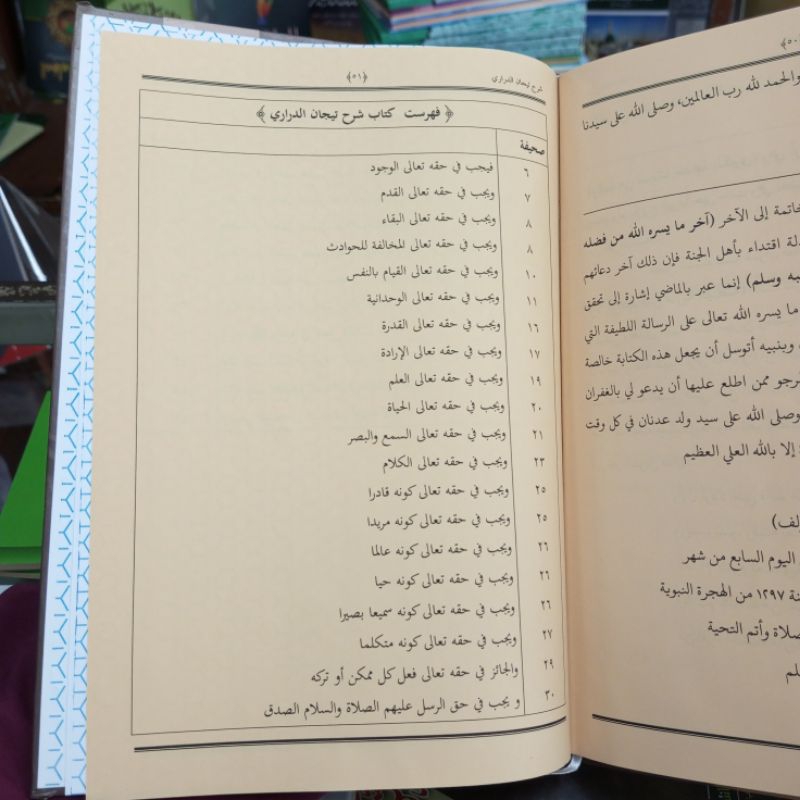 ﴿٥٠﴾
والحمد لله رب العالمين، وصلى الله على سيدنا
الخاتمة إلى الآخر (آخر ما يسره الله من فضله
اقتداء بأهل الجنة فإن ذلك آخر دعائهم
وسلم) إنما عبر بالماضي إشارة إلى تحقق
ما يسره الله تعالى على الرسالة اللطيفة التي
وبنبيه أتوسل أن يجعل هذه الكتابة خالصة
ممن اطلع عليها أن يدعو لي بالغفران
وصلى الله على سيد ولد عدنان في كل وقت
إلا بالله العلي العظيم
اليوم السابع من شهر
١٢٩٧ من الهجرة النبوية
وأتم التحية
شرح تيجان الدراري
﴿٥١﴾
﴿ فهرست كتاب شرح تيجان الدراري ﴾
صحيفة
٦ فيجب في حقه تعالى الوجود
٧ ويجب في حقه تعالى القدم
٨ ويجب في حقه تعالى البقاء
٨ ويجب في حقه تعالى المخالفة للحوادث
١٠ ويجب في حقه تعالى القيام بالنفس
١١ ويجب في حقه تعالى الوحدانية
١٦ ويجب في حقه تعالى القدرة
١٧ ويجب في حقه تعالى الإرادة
١٩ ويجب في حقه تعالى العلم
٢٠ ويجب في حقه تعالى الحياة
٢١ ويجب في حقه تعالى السمع والبصر
٢٣ ويجب في حقه تعالى الكلام
٢٥ ويجب في حقه تعالى كونه قادرا
٢٥ ويجب في حقه تعالى كونه مريدا
٢٦ ويجب في حقه تعالى كونه عالما
٢٦ ويجب في حقه تعالى كونه حيا
٢٦ ويجب في حقه تعالى كونه سميعا بصيرا
٢٧ ويجب في حقه تعالى كونه متكلما
٢٩ والجائز في حقه تعالى فعل كل ممكن أو تركه
٣٠ و يجب في حق الرسل عليهم الصلاة والسلام الصدق